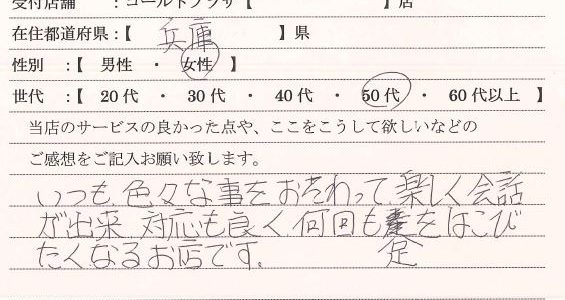 受付店舗 : ゴールドプラザ【 】店
在住都道府県:【 兵庫 】県
性別 :【 男性 ・ 女性 】
世代 :【 20代 ・ 30代 ・ 40代 ・ 50代 ・ 60代以上 】
当店のサービスの良かった点や、ここをこうして欲しいなどの
ご感想をご記入お願い致します。
いつも、色々な事をおそわって、楽しく会話
が出来 対応も良く 何回も足をはこび
たくなるお店です。